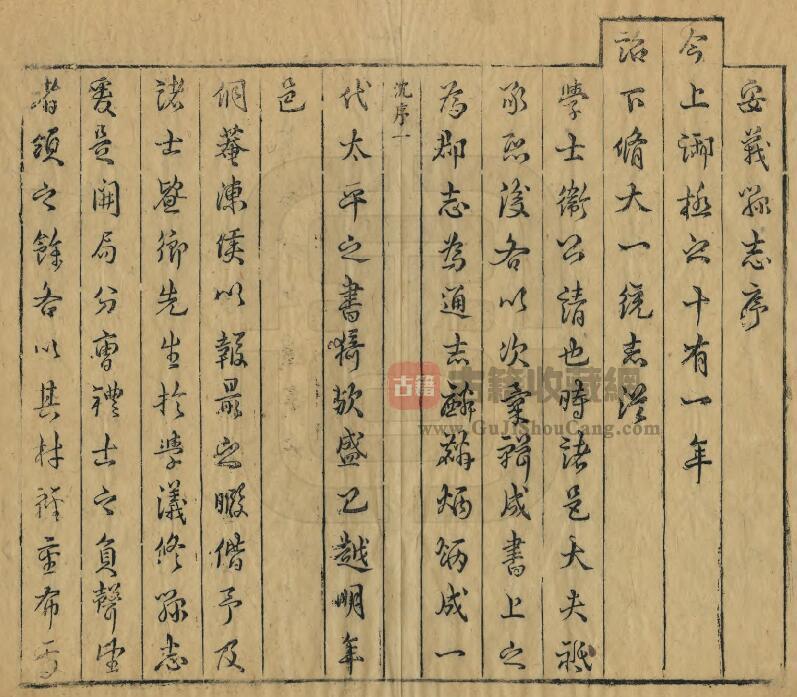 安義縣志序
今上御極之十有一年
詔下脩大一統志從
學士衞公請也時諸邑大夫祗
承恐後各以次彙輯成書上之
為郡志為通志酾麟炳炳成一
沈序一
代太平之書猗歟盛已越明年
邑
侗菴陳侯以報最之暇偕予及
諸士暨鄉先生於學議修縣志
爰是開局分曹禮士之負聲望
者領之餘各以其材
古籍
古籍收藏網
www.GuJiShouCang.com